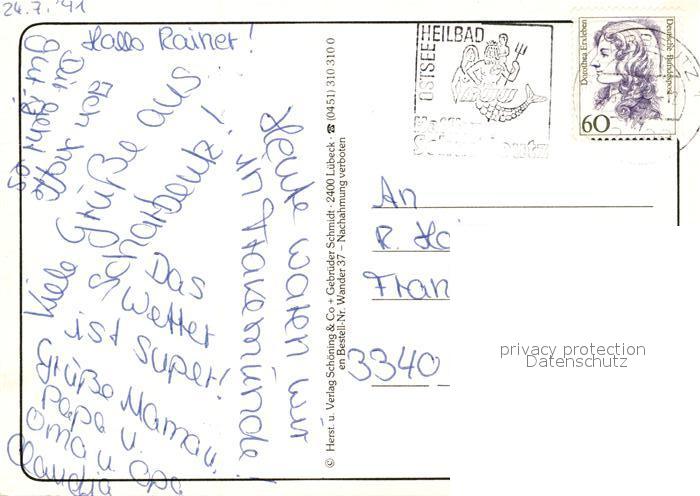 24.7.'91
Hallo Rainer!
Ich hoffe
Dir geht es
gut!
Viele Grüße aus
Scharbeutz!
Das
Wetter
ist super!
Heute waren wir
in Travemünde!
Grüße Mama u.
Papa u.
Oma u. Opa
Claudia
© Herst. u. Verlag Schöning & Co + Gebrüder Schmidt · 2400 Lübeck · ☎ (0451) 310 310 0
en Bestell-Nr. Wander 37 – Nachahmung verboten
OSTSEE
HEILBAD
Dorothea Erxleben
Deutsche Bundespost
60
An
R. Ha
Fran
3340
privacy protection
Datenschutz